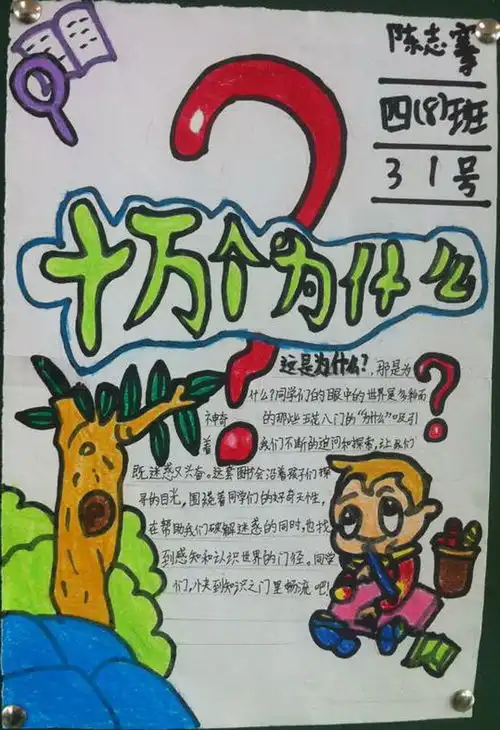 陈志
四(8)班
31号
十万个为什么
这是为什么?,那是为
什么?同学们的眼中的世界是多彩而
神奇的那些五花八门的“为什么”吸引
着我们不断的追问和探索,让我们
既迷惑又兴奋。这套图书会沿着孩子们探
寻的目光,围绕着同学们的好奇天性,
在帮助我们破解迷惑的同时,也找
到感知和认识世界的门径。同学
们,快到知识之门里畅流吧!